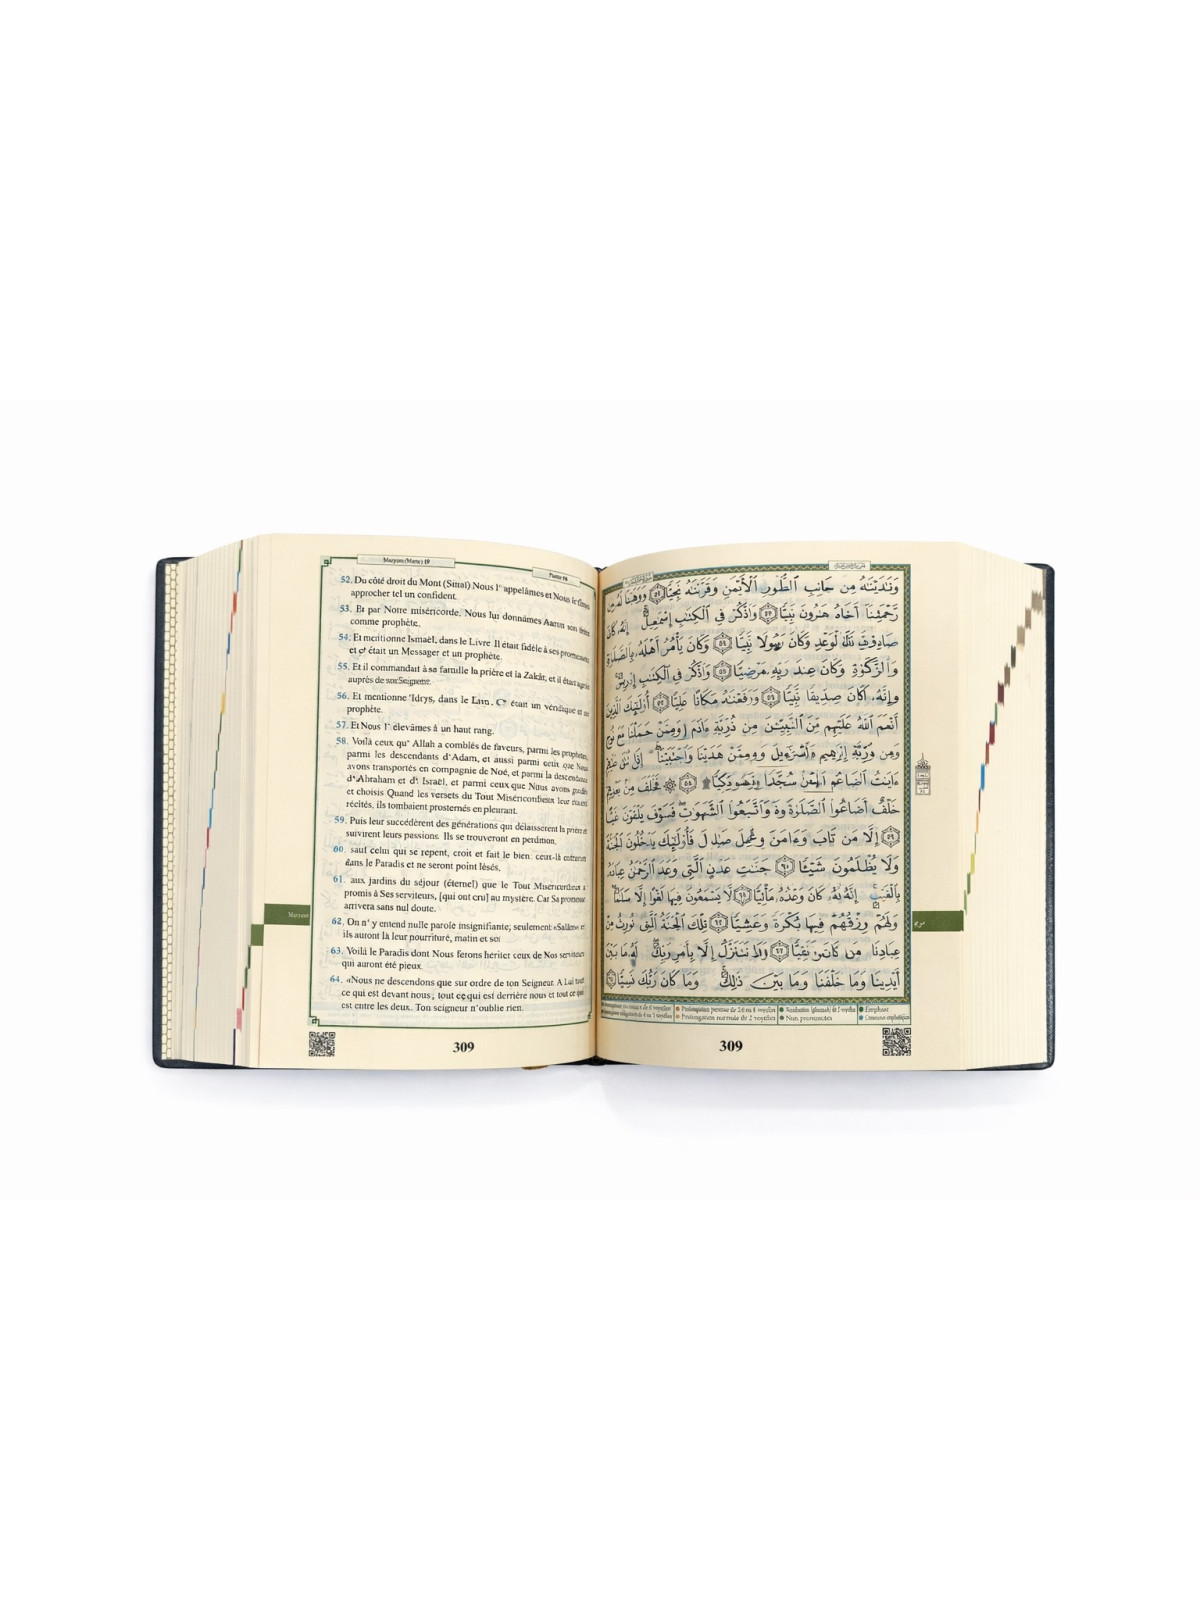 Maryam (Marie) 19
Partie 16
52. Du côté droit du Mont (Sinaï) Nous l' appelâmes et Nous le fîmes
approcher tel un confident.
53. Et par Notre miséricorde, Nous lui donnâmes Aaron son frère
comme prophète.
54. Et mentionne Ismaël, dans le Livre. Il était fidèle à ses promesses
et c' était un Messager et un prophète.
55. Et il commandait à sa famille la prière et la Zakât, et il était agréé
auprès de son Seigneur.
56. Et mentionne 'Idrys, dans le Livre. C' était un véridique et un
prophète.
57. Et Nous l' élevâmes à un haut rang.
58. Voilà ceux qu' Allah a comblés de faveurs, parmi les prophètes,
parmi les descendants d'Adam, et aussi parmi ceux que Nous
avons transportés en compagnie de Noé, et parmi la descendance
d'Abraham et d' Israël, et parmi ceux que Nous avons guidés
et choisis Quand les versets du Tout Miséricordieux leur étaient
récités, ils tombaient prosternés en pleurant.
59. Puis leur succédèrent des générations qui délaissèrent la prière et
suivirent leurs passions. Ils se trouveront en perdition,
60. sauf celui qui se repent, croit et fait le bien: ceux-là entreront
dans le Paradis et ne seront point lésés,
61. aux jardins du séjour (éternel) que le Tout Miséricordieux a
promis à Ses serviteurs, [qui ont cru] au mystère. Car Sa promesse
arrivera sans nul doute.
62. On n' y entend nulle parole insignifiante; seulement: «Salâm» et
ils auront là leur nourriture, matin et soir
63. Voilà le Paradis dont Nous ferons hériter ceux de Nos serviteurs
qui auront été pieux.
64. «Nous ne descendons que sur ordre de ton Seigneur. A Lui tout
ce qui est devant nous, tout ce qui est derrière nous et tout ce qui
est entre les deux. Ton seigneur n'oublie rien.
Maryam
309
وَنَٰدَيْنَٰهُ مِن جَانِبِ ٱلطُّورِ ٱلْأَيْمَنِ وَقَرَّبْنَٰهُ نَجِيًّا ٥٢ وَوَهَبْنَا لَهُۥ مِن
رَّحْمَتِنَآ أَخَاهُ هَٰرُونَ نَبِيًّا ٥٣ وَٱذْكُرْ فِى ٱلْكِتَٰبِ إِسْمَٰعِيلَ إِنَّهُۥ كَانَ
صَادِقَ ٱلْوَعْدِ وَكَانَ رَسُولًا نَّبِيًّا ٥٤ وَكَانَ يَأْمُرُ أَهْلَهُۥ بِٱلصَّلَوٰةِ
وَٱلزَّكَوٰةِ وَكَانَ عِندَ رَبِّهِۦ مَرْضِيًّا ٥٥ وَٱذْكُرْ فِى ٱلْكِتَٰبِ إِدْرِيسَ
إِنَّهُۥ كَانَ صِدِّيقًا نَّبِيًّا ٥٦ وَرَفَعْنَٰهُ مَكَانًا عَلِيًّا ٥٧ أُو۟لَٰٓئِكَ ٱلَّذِينَ
أَنْعَمَ ٱللَّهُ عَلَيْهِم مِّنَ ٱلنَّبِيِّـۧنَ مِن ذُرِّيَّةِ ءَادَمَ وَمِمَّنْ حَمَلْنَا مَعَ نُوحٍ
وَمِن ذُرِّيَّةِ إِبْرَٰهِيمَ وَإِسْرَٰٓءِيلَ وَمِمَّنْ هَدَيْنَا وَٱجْتَبَيْنَآ إِذَا تُتْلَىٰ عَلَيْهِمْ
ءَايَٰتُ ٱلرَّحْمَٰنِ سُجَّدًا وَبُكِيًّا ٥٨ فَخَلَفَ مِنۢ بَعْدِهِمْ
خَلْفٌ أَضَاعُوا۟ ٱلصَّلَوٰةَ وَٱتَّبَعُوا۟ ٱلشَّهَوَٰتِ فَسَوْفَ يَلْقَوْنَ غَيًّا
٥٩ إِلَّا مَن تَابَ وَءَامَنَ وَعَمِلَ صَٰلِحًا فَأُو۟لَٰٓئِكَ يَدْخُلُونَ ٱلْجَنَّةَ
وَلَا يُظْلَمُونَ شَيْـًٔا ٦٠ جَنَّٰتِ عَدْنٍ ٱلَّتِى وَعَدَ ٱلرَّحْمَٰنُ عِبَادَهُۥ
بِٱلْغَيْبِ إِنَّهُۥ كَانَ وَعْدُهُۥ مَأْتِيًّا ٦١ لَّا يَسْمَعُونَ فِيهَا لَغْوًا إِلَّا سَلَٰمًا
وَلَهُمْ رِزْقُهُمْ فِيهَا بُكْرَةً وَعَشِيًّا ٦٢ تِلْكَ ٱلْجَنَّةُ ٱلَّتِى نُورِثُ مِنْ
عِبَادِنَا مَن كَانَ تَقِيًّا ٦٣ وَمَا نَتَنَزَّلُ إِلَّا بِأَمْرِ رَبِّكَ لَهُۥ مَا بَيْنَ
أَيْدِينَا وَمَا خَلْفَنَا وَمَا بَيْنَ ذَٰلِكَ وَمَا كَانَ رَبُّكَ نَسِيًّا ٦٤
Prolongation normale de 2 voyelles
Non prononcées
309